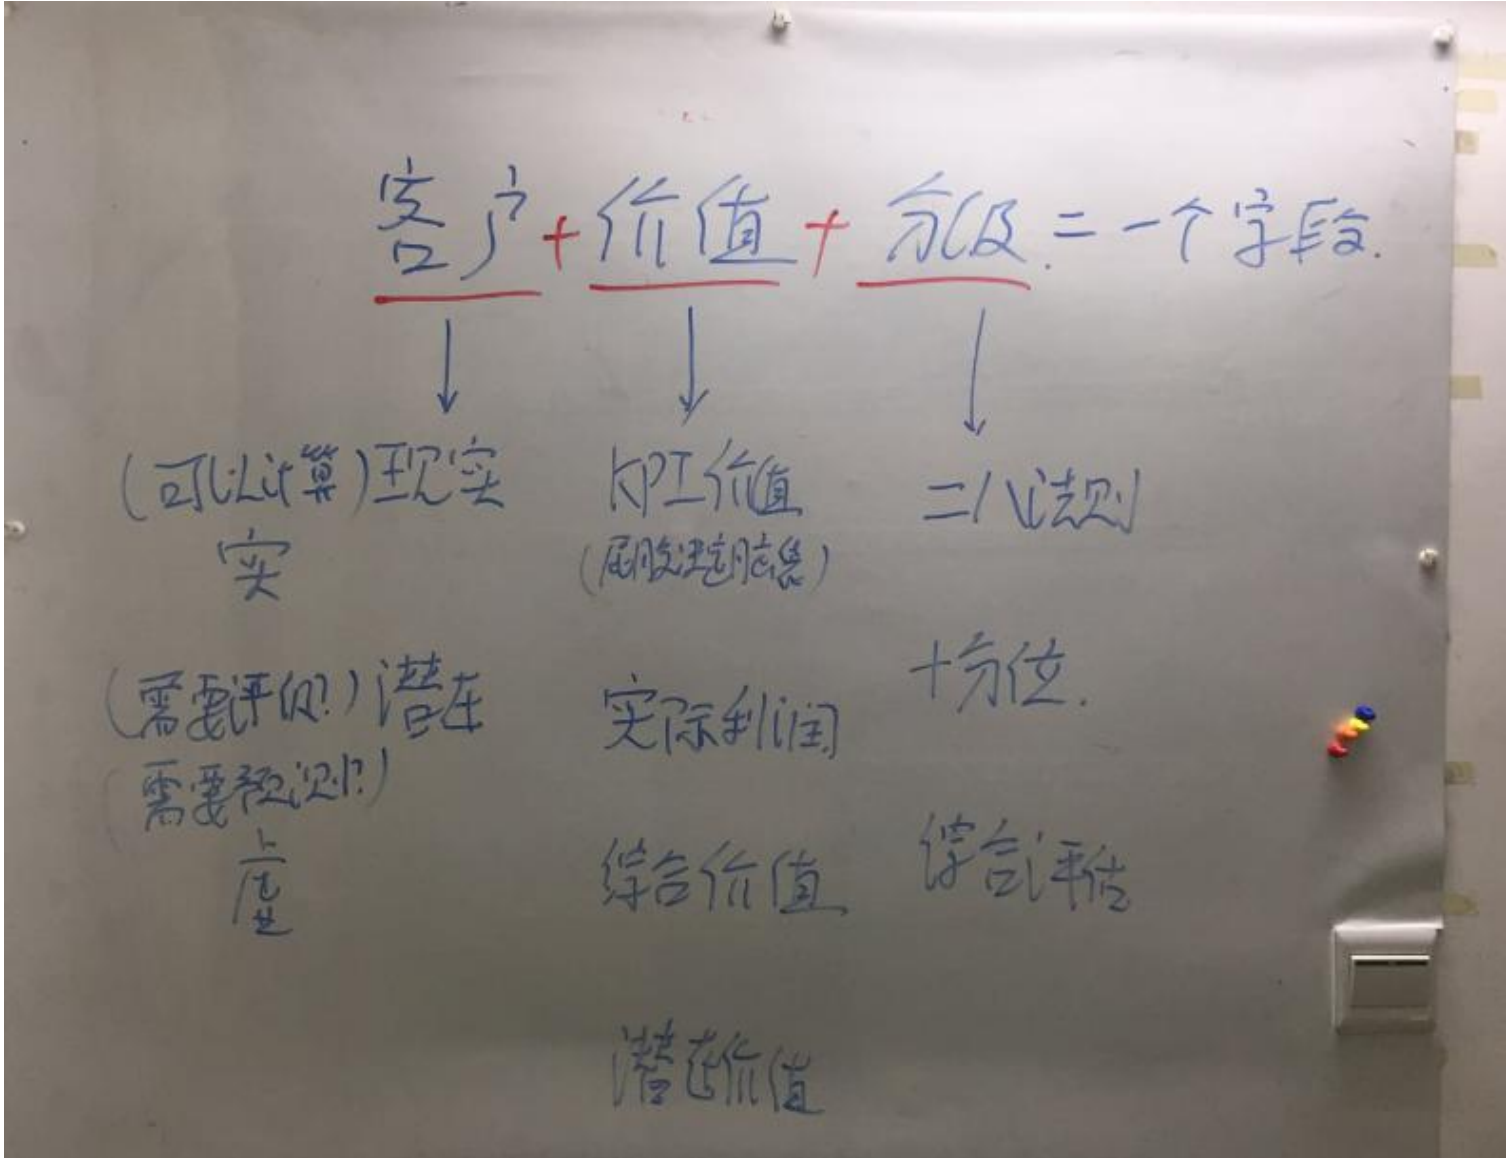 客户+价值+分级.=一个字段.
(可以计算)现实
实
(需要评估?)潜在
(需要预测?)
虚
KPI价值
(屁股决定脑袋)
实际利润
综合价值
潜在价值
二八法则
十分位.
综合评估